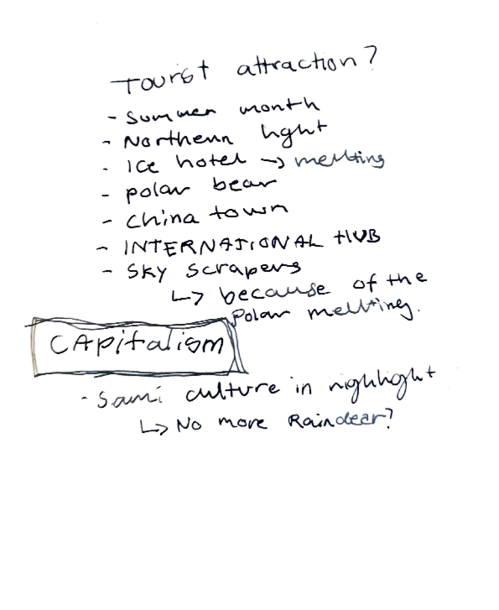 Tourist attraction?
- Summer month
- Northern light
- Ice hotel -> melting
- polar bear
- China town
- INTERNATIONAL HUB
- Sky scrapers
↳ because of the
polar mellting.
CApitalism
- Sami culture in highlight
↳ No more Raindear?